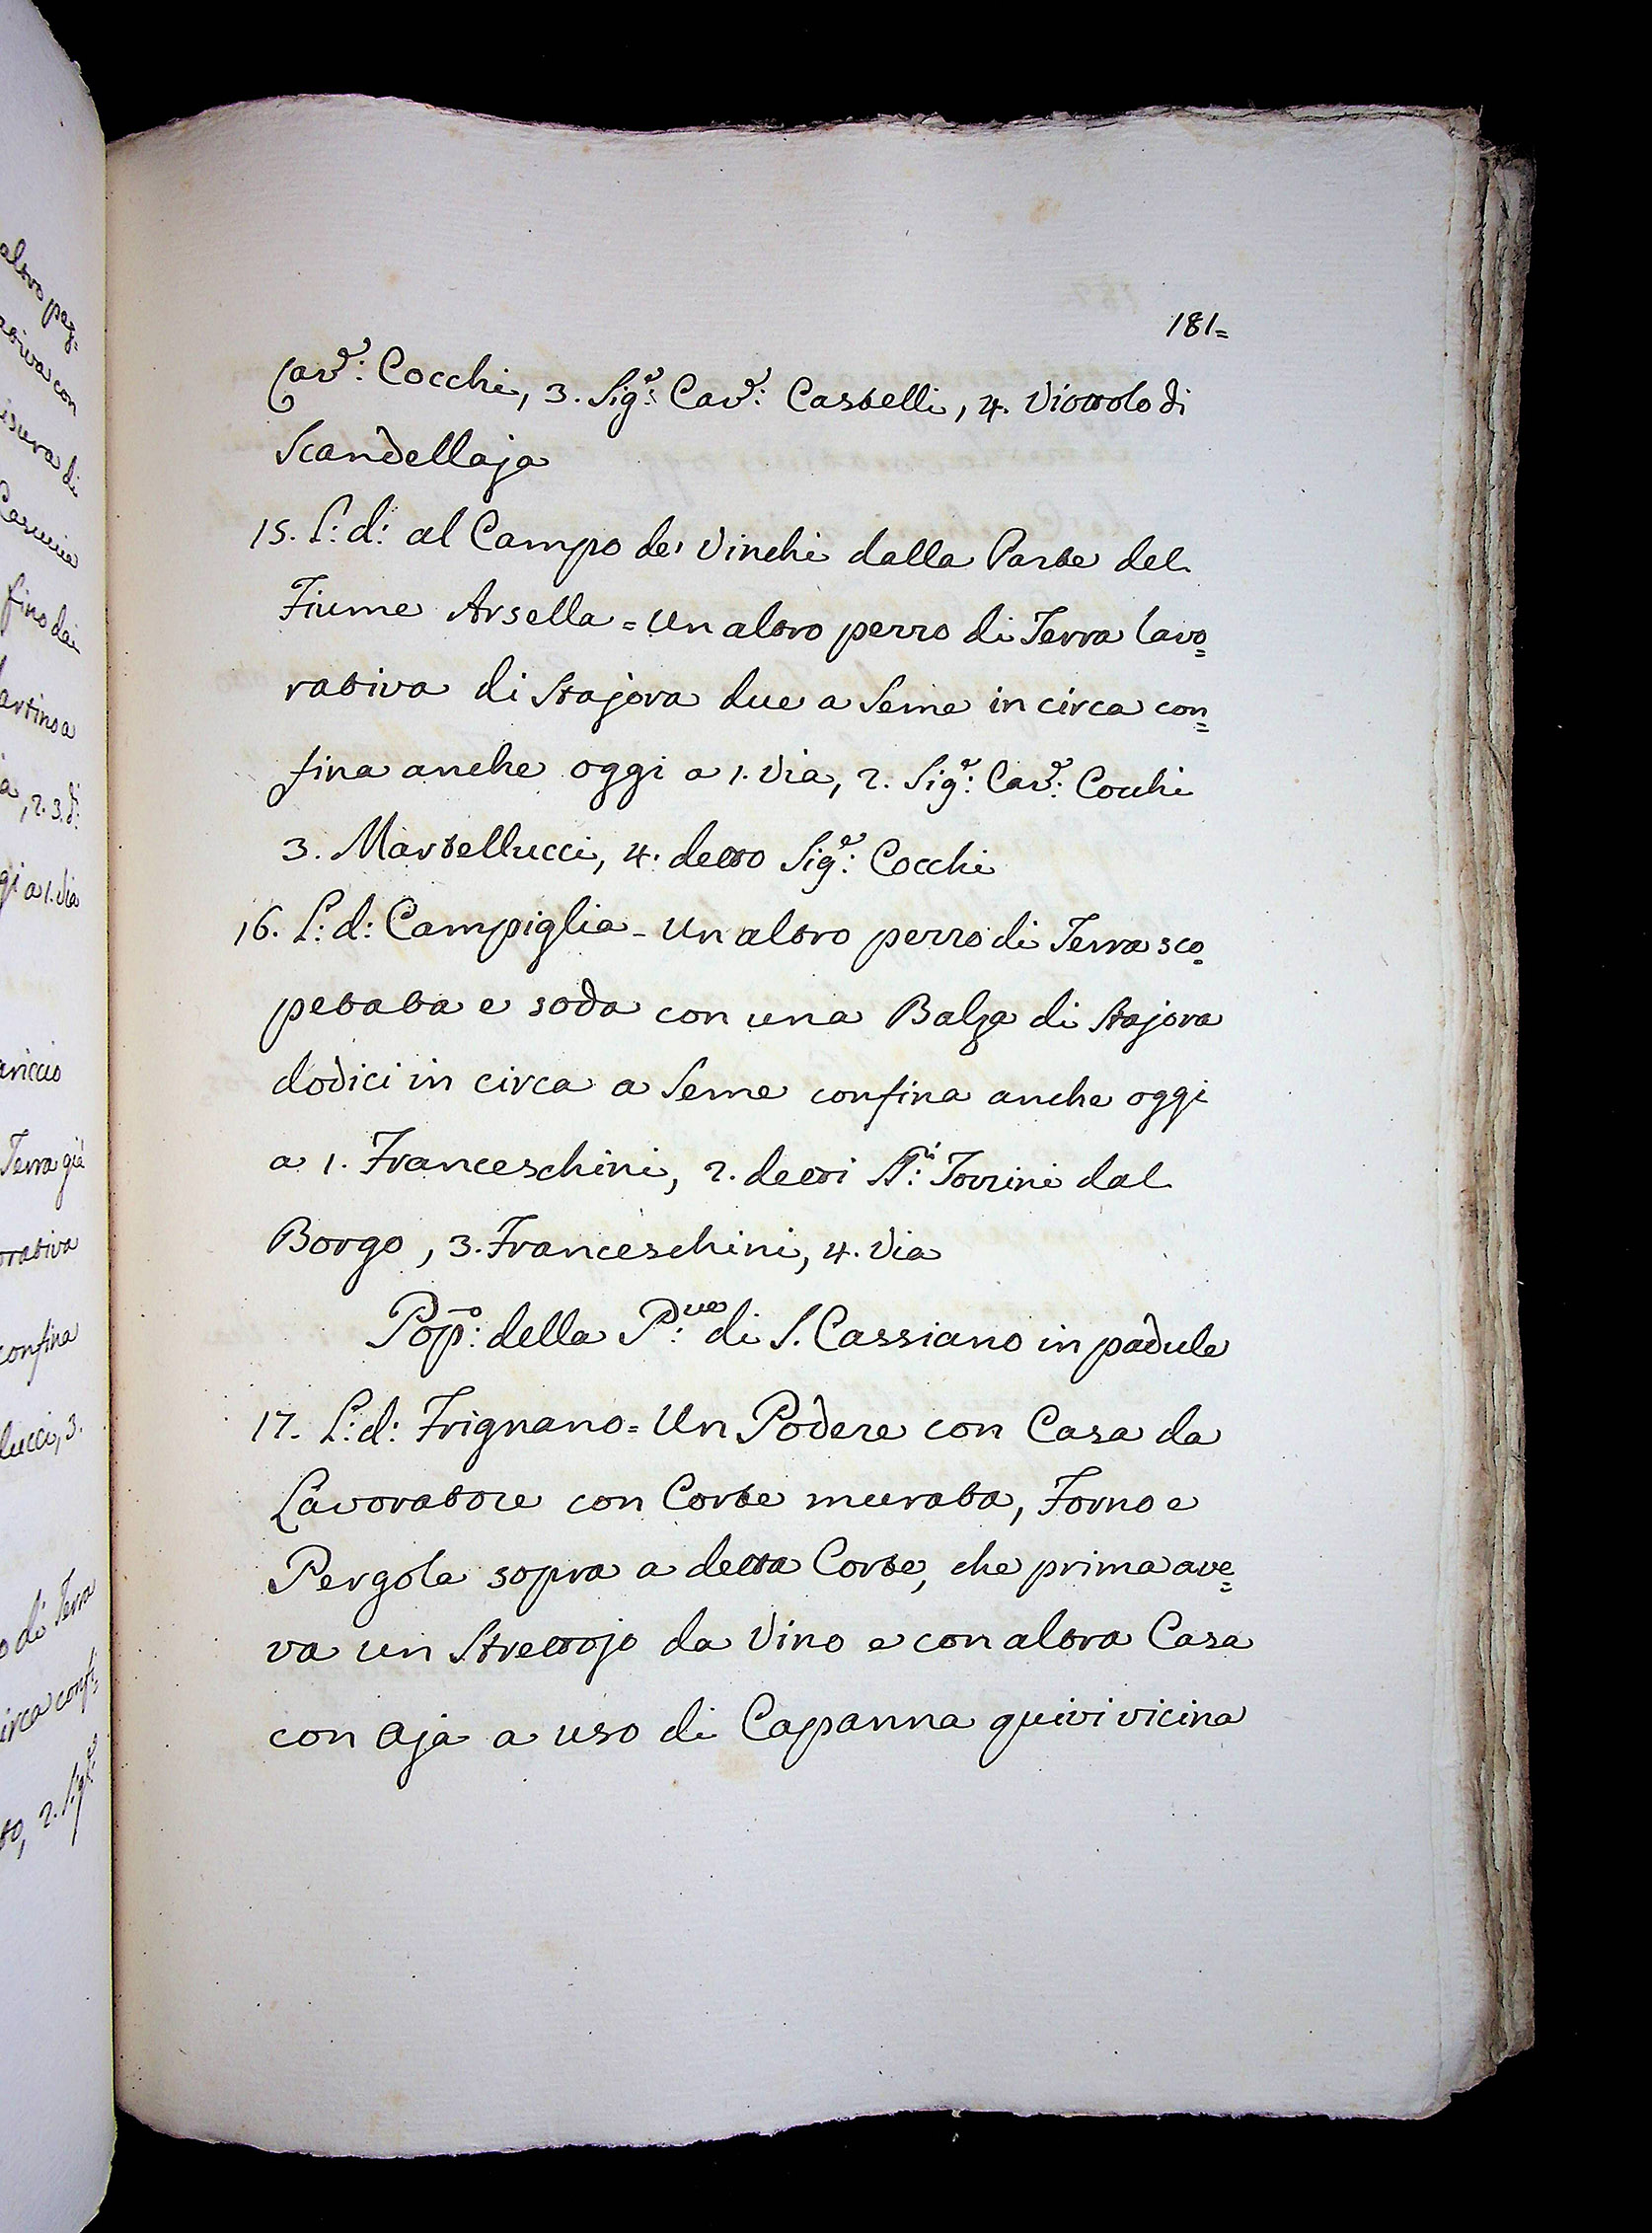 181=
Cav.e: Cocchi, 3. Sig.e: Cav.e: Castelli, 4. Viottolo di
Scandellaja
15. L: d: al Campo de' Vinchi dalla Parte del
Fiume Arsella = Un altro pezzo di Terra lavo=
rativa di Stajora due a Seme in circa con=
fina anche oggi a 1. Via, 2. Sig.e: Cav.e: Cocchi
3. Martellucci, 4. detto Sig.e: Cocchi
16. L: d: Campiglia = Un altro pezzo di Terra sco=
petata e soda con una Balza di Stajora
dodici in circa a Seme confina anche oggi
a 1. Franceschini, 2. detti SS.ri: Torrini dal
Borgo, 3. Franceschini, 4. Via
Pop.o: della P.ve: di S. Cassiano in padule
17. L: d: Frignano = Un Podere con Casa da
Lavoratore con Corte murata, Forno e
Pergola sopra a detta Corte, che prima ave=
va un Strettojo da Vino e con altra Casa
con Aja a uso di Capanna quivi vicina